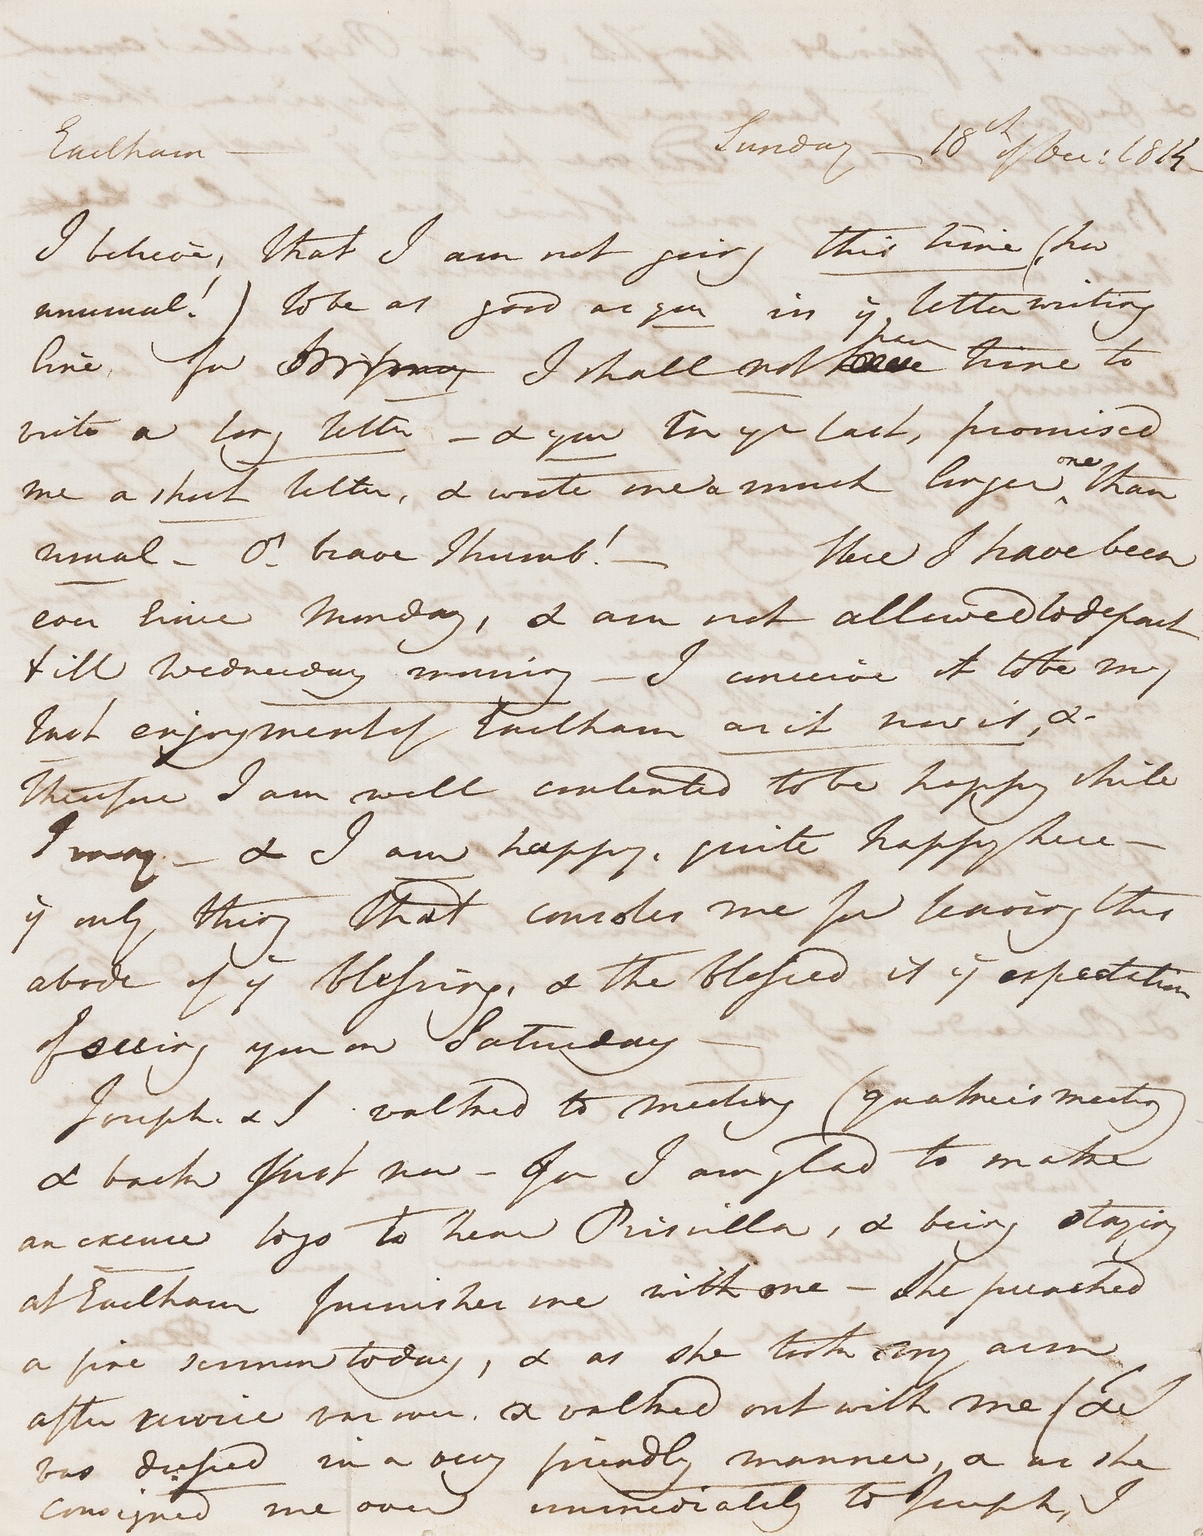 Earlham — Sunday — 18th of Dec: 1814
I believe, that I am not going this time (how
unusual!) to be as good as you in ye letter writing
line, for I shall not have time to
write a long letter — & you in yr last, promised
me a short letter, & wrote me a much longer one than
usual — O! brave Thumb! — Here I have been
ever since Monday, & am not allowed to depart
till Wednesday morning — I conceive it to be my
last enjoyment of Earlham as it now is, &
therefore I am well contented to be happy while
I may — & I am happy, quite happy here —
ye only thing that consoles me for leaving this
abode of ye blessing, & the blessed is ye expectation
of seeing you on Saturday —
Joseph & I walked to meeting (quakers meeting)
& back just now — for I am glad to make
an excuse to go to hear Priscilla, & being staying
at Earlham furnishes me with one — She preached
a fine sermon today, & as she took my arm
after service was over & walked out with me (& I
was dressed in a very friendly manner, & as she
consigned me over immediately to Joseph, I